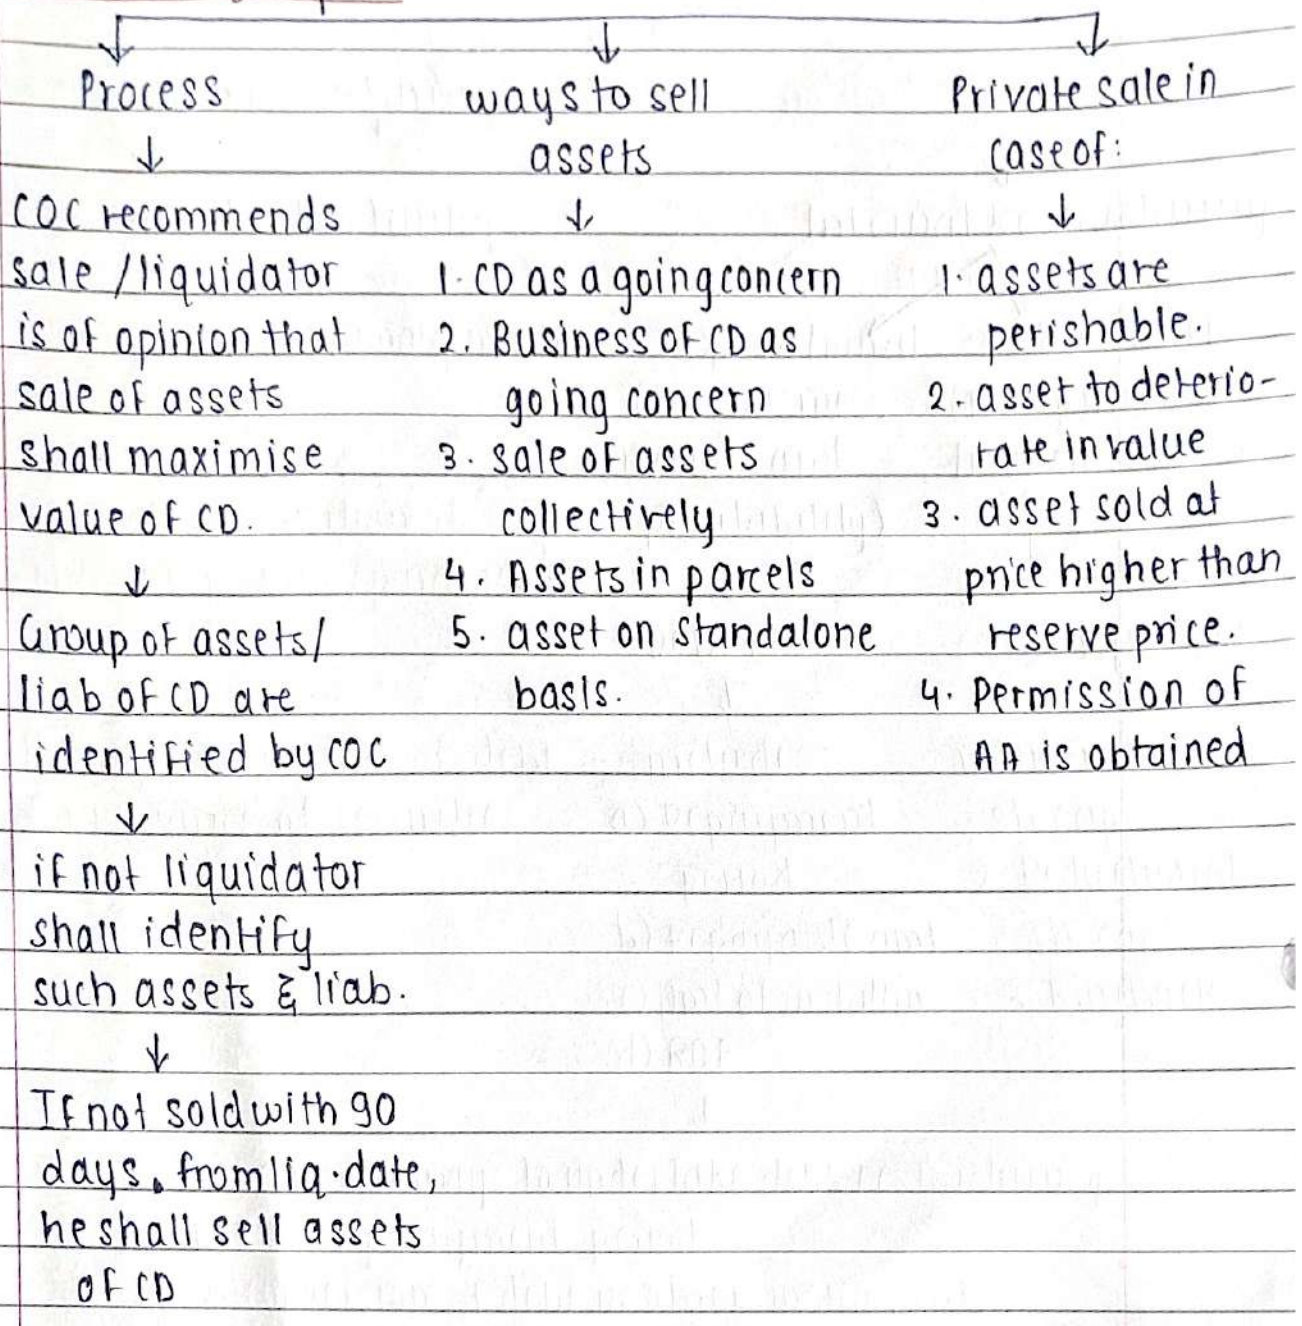 Process
↓
COC recommends
sale / liquidator
is of opinion that
sale of assets
shall maximise
value of CD.
↓
Group of assets/
liab of CD are
identified by COC
↓
if not liquidator
shall identify
such assets & liab.
↓
If not sold with 90
days. from liq. date,
he shall sell assets
of CD
ways to sell
assets
↓
1. CD as a going concern
2. Business of CD as
going concern
3. sale of assets
collectively
4. Assets in parcels
5. asset on standalone
basis.
Private sale in
case of:
↓
1. assets are
perishable.
2. asset to deterio-
rate in value
3. asset sold at
price higher than
reserve price.
4. Permission of
AA is obtained